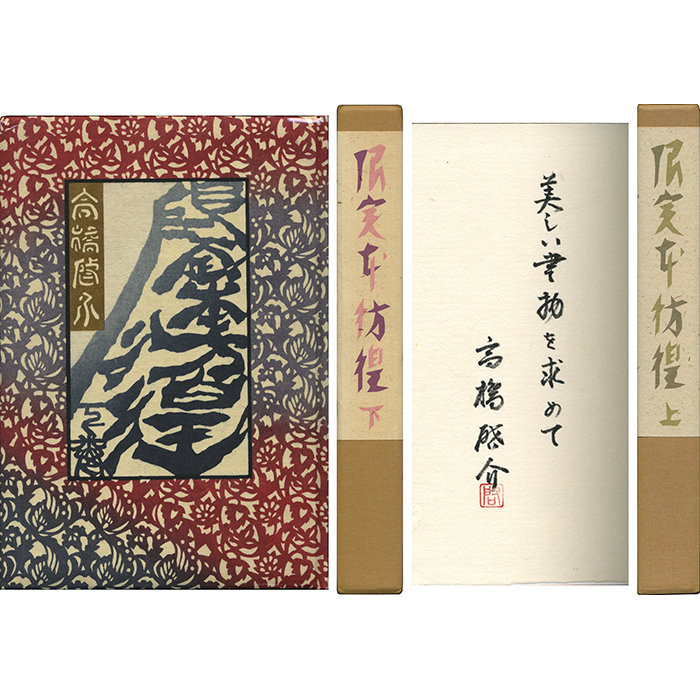 高橋啓介
限定本
彷徨
下巻
限定本彷徨 下
美しい書物を求めて
高橋啓介
啓
限定本彷徨 上